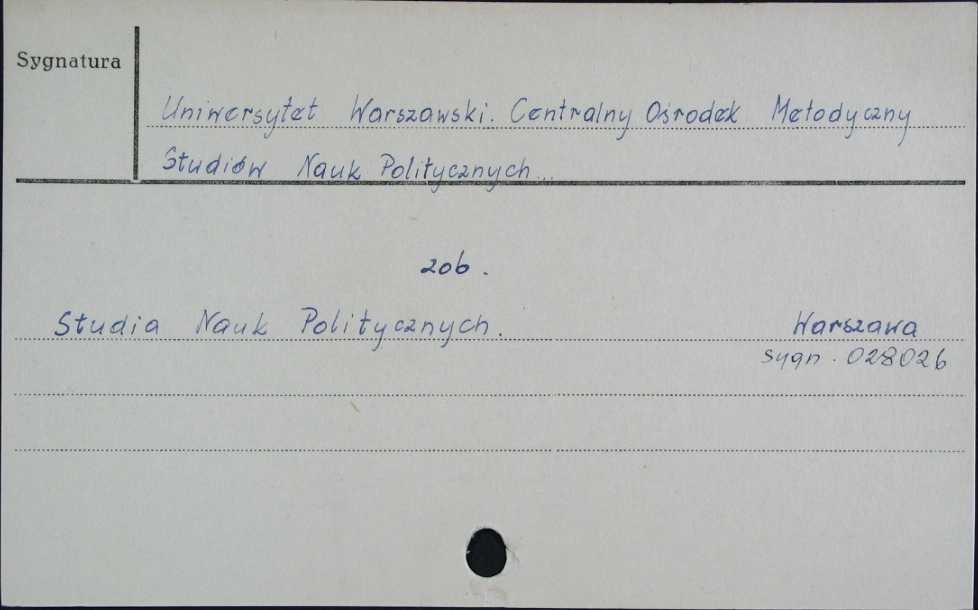 Sygnatura
Uniwersytet Warszawski. Centralny Ośrodek Metodyczny
Studiów Nauk Politycznych...
zob.
Studia Nauk Politycznych. Warszawa
sygn. 028026